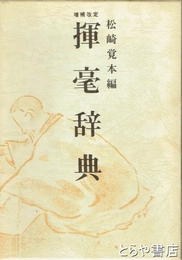 増補改定
松崎覚本編
揮毫辞典
とらや書店